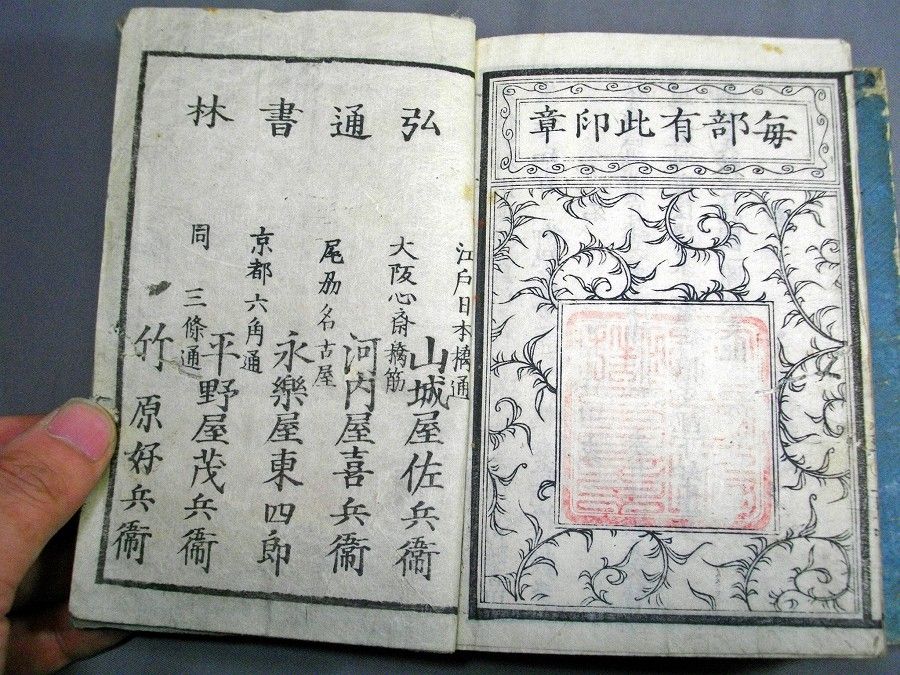 每部有此印章
弘通書林
江戶日本橋通
山城屋佐兵衞
大阪心斎橋筋
河内屋喜兵衞
尾刕名古屋
永樂屋東四郎
京都六角通
平野屋茂兵衞
同 三條通
竹原好兵衞